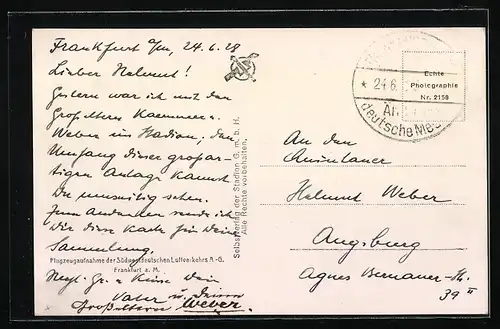 Frankfurt a/m, 24.6.28
Lieber Helmut!
Gestern war ich mit den
Großeltern Kaemmerer
Weber im Stadion, den
Umfang dieser großar-
tigen Anlage kannst
Du umseitig sehen.
Zum Andenken sende ich
Dir diese Karte für Deine
Sammlung.
Flugzeugaufnahme der Südwestdeutschen Luftverkehrs A.-G.
Frankfurt a. M.
Herzl. Gr. u Küsse Dein
Vater u. Deinen
Großeltern Weber.
Selbstverlag der Stadion G. m. b. H.
Alle Rechte vorbehalten.
* 24.6.
deutsche
Echte
Photographie
Nr. 2158
An den
Quintaner
Helmut Weber
Augsburg
Agnes Bernauer-Str.
39 II